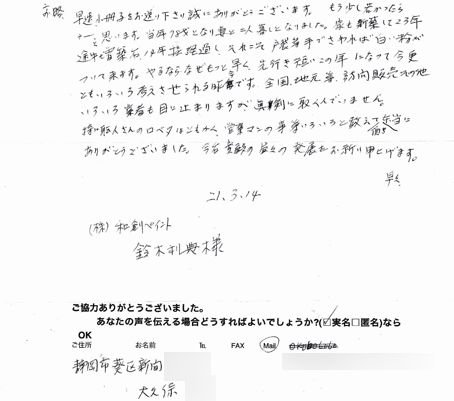 前略 早速小冊子をお送り下さり誠にありがとうございます。 もう少し若かったら
と思います。当年78才となり妻と二人暮しとなりました。家も新築して23年
途中 14年 経過し それこそ 戸袋等手でさわれば白い粉が
ついて来ます。やるならなぜもっと早く、先行き短いこの年になって今更
ともいろいろ考えさせられる 昨今です。全国、地元等、訪問販売その他
いろいろ業者も目に止まりますが真剣に取くんでいません。
営業マンの事等いろいろと教えて
ありがとうございました。今后貴殿の益々の発展をお祈り申し上げます。
早々
21.3.14
(株)和創ペイント
鈴木利典様
ご協力ありがとうございました。
あなたの声を伝える場合どうすればよいでしょうか?(☑実名□匿名)なら
OK
ご住所 お名前 ℡ FAX Mail
静岡市葵区新間
大久保